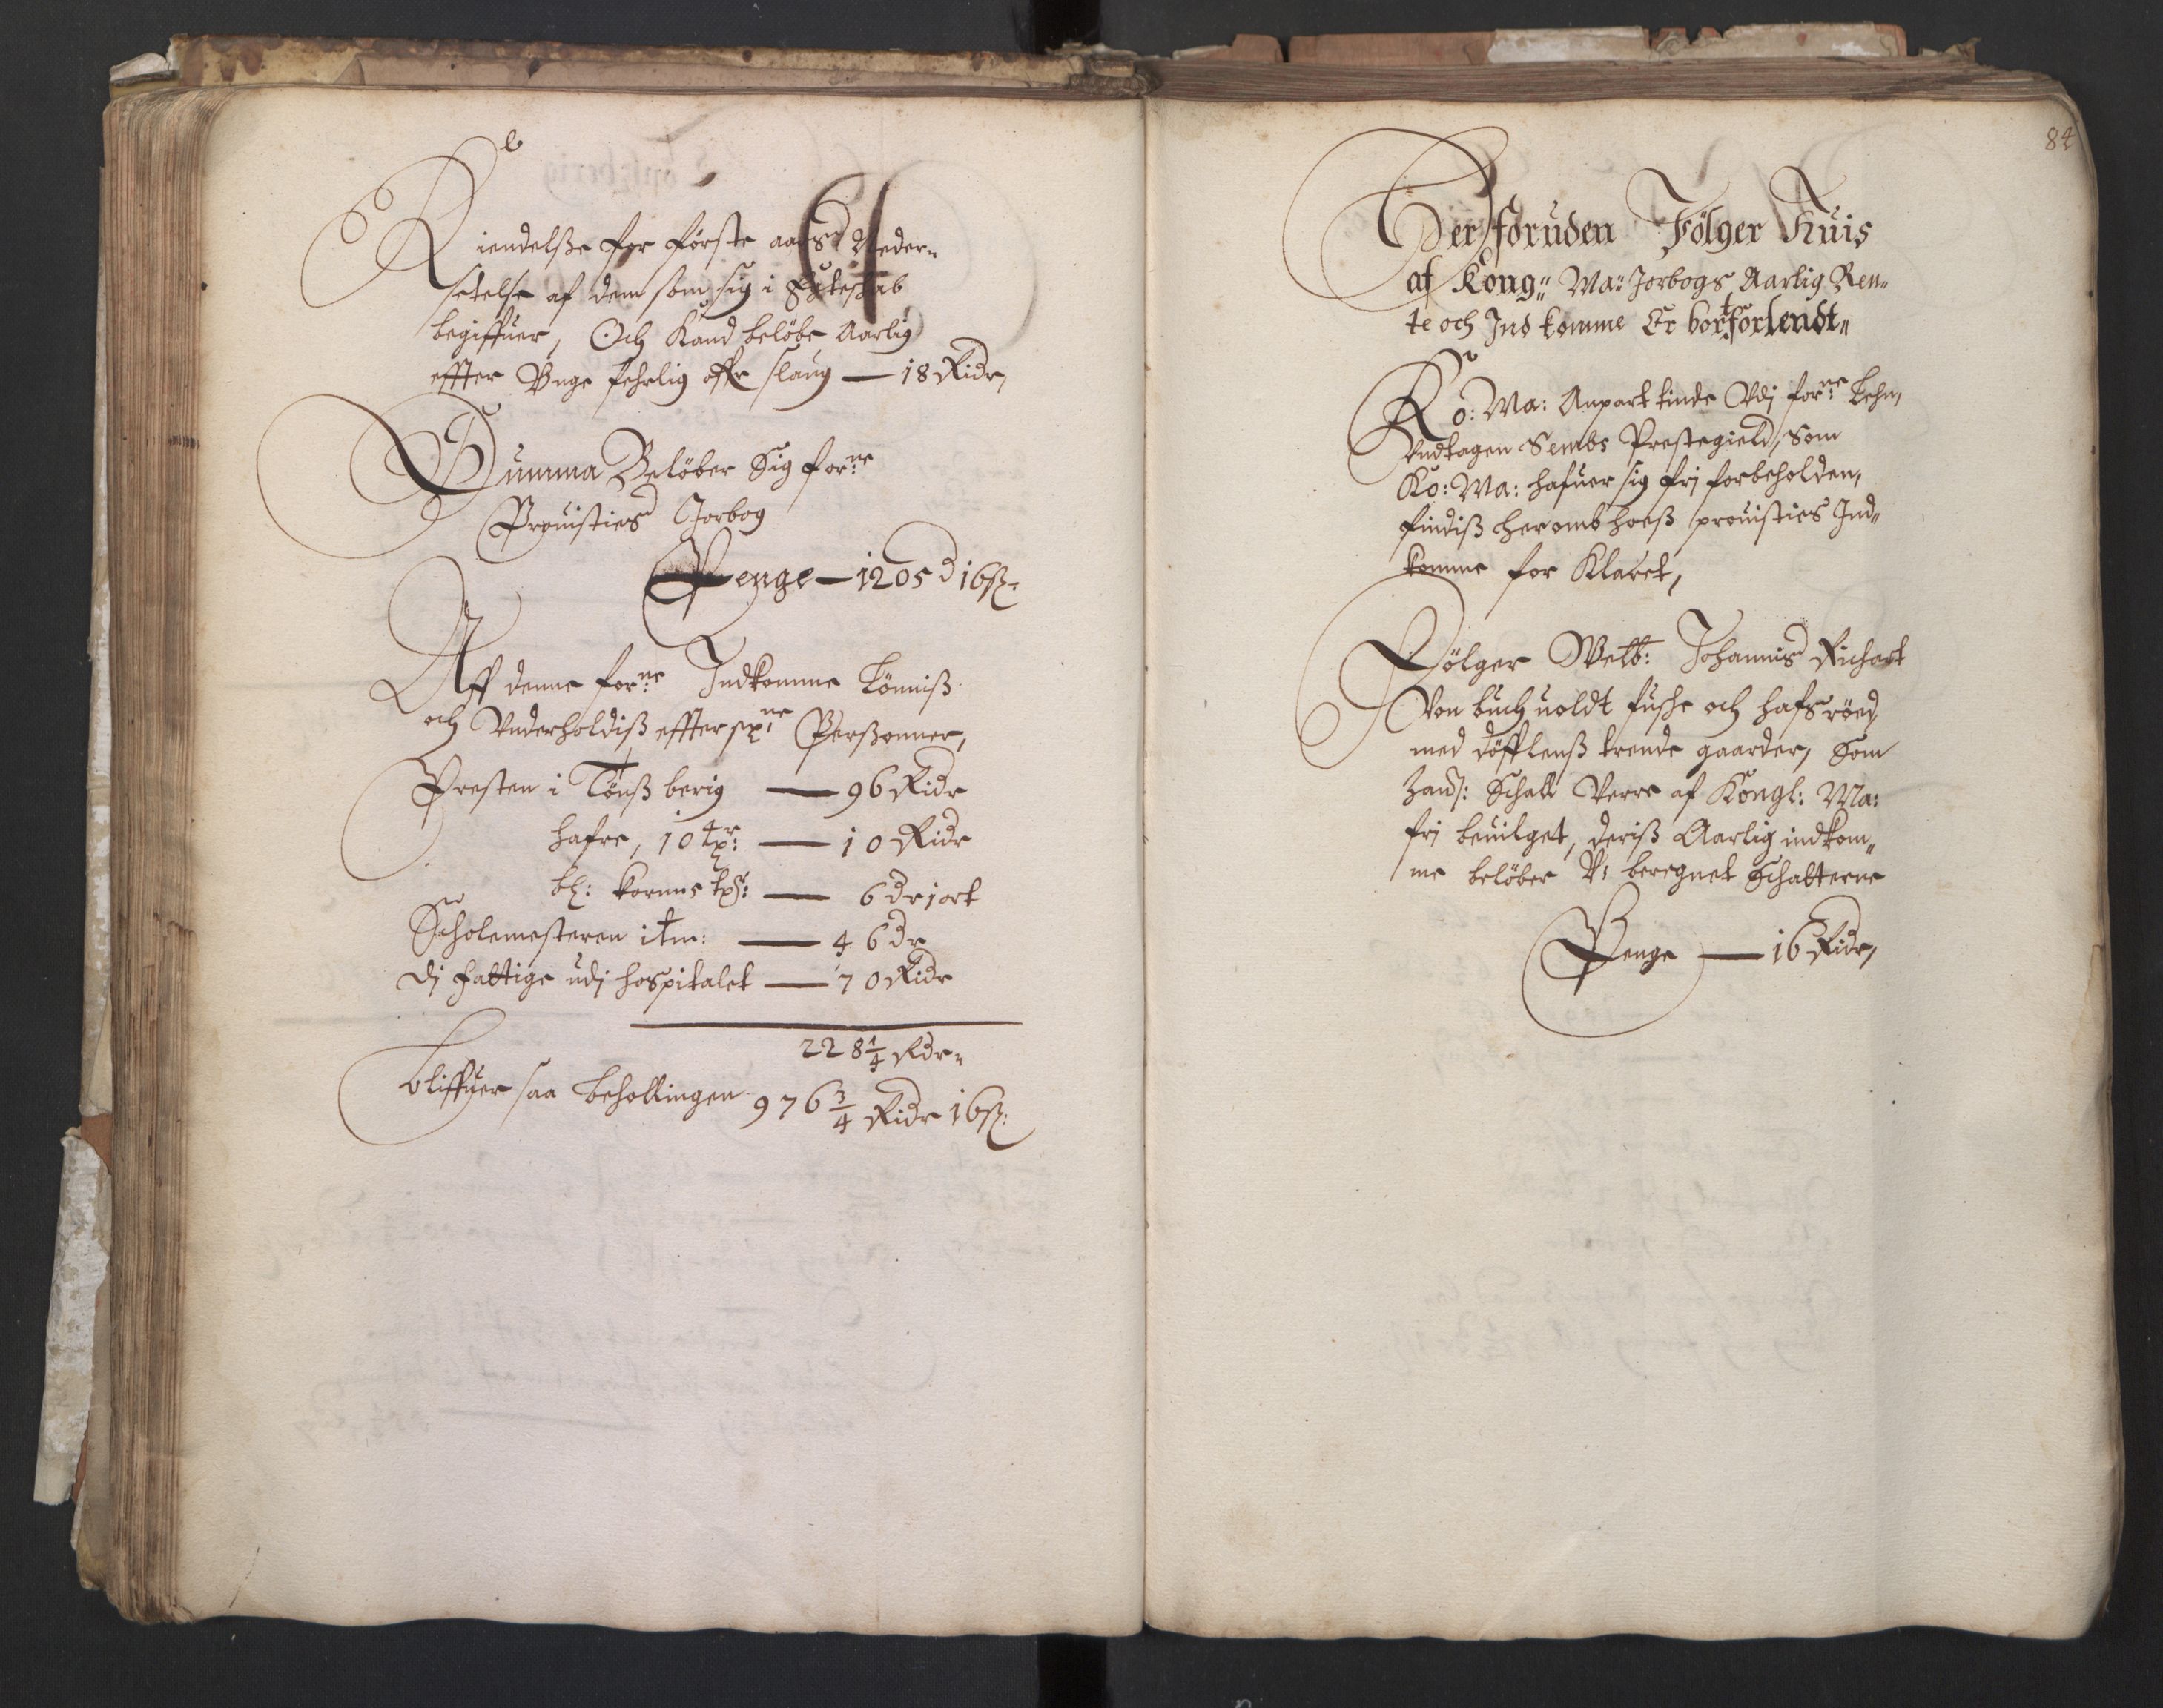 Kiendelße for første aars Neder=
setelse af dem som sig i Echteskab
begiffuer, Och Kand beløbe Aarlig
effter Unge fehrlig offr slaug — 18 Ridr,
Summa Beløber Sig forne:
Prouisties Jorbog
Penge — 1205 d 16 ß:
Aff denne forne: Indkomme Lønniß
och Underholdiß effterschne: Perßonner,
Presten i Tønßberig — 96 Ridr
hafre, 10 tr: — 10 Ridr
bl: korns — 6 dr j ort
Scholemesteren itm: — 46 dr
Dj fattige udj hospitalet — 70 Ridr
228 1/4 Rdr=
bliffuer saa behollingen 976 3/4 Ridr 16 ß:
84
Der foruden Følger Huis
af Kong: Ma: Jorbogs Aarlig Ren=
te och Ind komme Er bortforlendt=
Ko: Ma: Anpart tinde Udj forne: Lehn,
Undtagen Sembs Prestegield, Som
Ko: Ma: hafuer sig frj forbeholden,
findiß her omb hoeß prouisties Ind=
komme for Klaret,
Følger Welb: Johannis Richart
Von buchuoldt fushe och hafsrøed,
med døfflenß trende gaarder, Som
hand: Schall Verre af Kongl: Ma:
frj beuilget, deriß Aarlig indkom=
me beløber U: beregnet Schatterne
Penge — 16 Ridr,